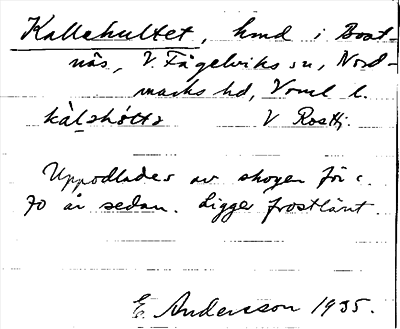 Kallehultet, hmd i Boat-
näs, V. Fågelviks sn, Nord-
marks hd, Vrml l.
kàl̥ehől̥tə V Rosthj.
Uppodlades av skogen för c.
70 år sedan. Ligger frostlänt.
E. Andersson 1935.